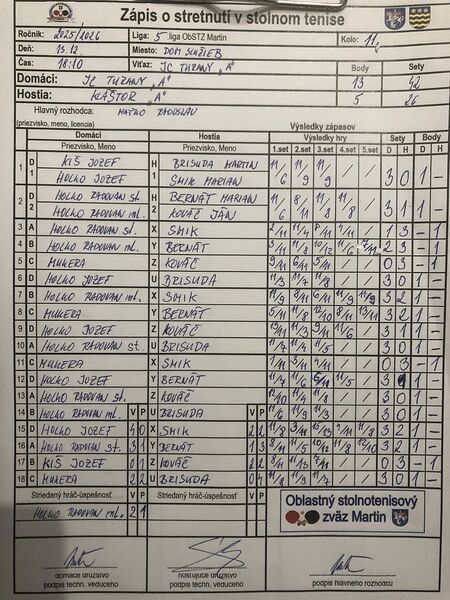 Zápis o stretnutí v stolnom tenise
Ročník: 2025/2026 Liga: 5. liga ObSTZ Martin Kolo: 11.
Deň: 13.12. Miesto: DOM SLUŽIEB
Čas: 18:10 Víťaz: JC TURANY "A" Body Sety
Domáci: JC TURANY "A" 13 42
Hostia: KLÁŠTOR "A" 5 26
Hlavný rozhodca: HATKO RADOSLAV
(priezvisko, meno, licencia) Výsledky zápasov
Domáci Hostia Výsledky hry Sety Body
Priezvisko, Meno Priezvisko, Meno 1.set 2.set 3.set 4.set 5.set D H D H
1 D1 KIŠ JOZEF H1 BRISUDA MARTIN 11/6 11/9 11/9 / / 3 0 1 -
HOLKO JOZEF SMIK MARIAN
2 D2 HOLKO RADOVAN st. H2 BERNÁT MARIAN 11/6 8/11 11/8 11/8 / 3 1 1 -
HOLKO RADOVAN ml. KOVÁČ JÁN
3 A HOLKO RADOVAN st. X SMIK 1 3 - 1
4 B HOLKO RADOVAN ml. Y BERNÁT 3/11 11/8 10/12 11/6 2 3 - 1
5 C MUKERA Z KOVÁČ 9/11 6/11 5/11 / / 0 3 - 1
6 D HOLKO JOZEF U BRISUDA 11/3 11/7 11/8 / / 3 0 1 -
7 B HOLKO RADOVAN ml. X SMIK 11/9 8/11 6/11 11/9 11/9 3 2 1 -
8 C MUKERA Y BERNÁT 5/11 11/8 12/10 8/11 13/11 3 2 1 -
9 D HOLKO JOZEF Z KOVÁČ 13/11 11/3 9/11 11/6 / 3 1 1 -
10 A HOLKO RADOVAN st U BRISUDA 11/7 11/4 11/5 / / 3 0 1 -
11 C MUKERA X SMIK 1/11 3/11 4/11 / / 0 3 - 1
12 D HOLKO JOZEF Y BERNÁT 11/7 11/6 11/5 / 3 1 1 -
13 A HOLKO RADOVAN st. Z KOVÁČ 12/10 11/4 11/8 / / 3 0 1 -
14 B HOLKO RADOVAN ml. V P U BRISUDA V P 11/6 11/9 11/3 / / 3 0 1 -
15 D HOLKO JOZEF 4 0 X SMIK 2 2 3 2 1 -
16 A HOLKO RADOVAN st. 3 1 Y BERNÁT 1 3 8/11 11/5 10/12 11/8 12/10 3 2 1 -
17 B KIŠ JOZEF 0 1 Z KOVÁČ 2 2 8/11 11/13 7/11 / / 0 3 - 1
18 C MUKERA 2 2 U BRISUDA 0 4 11/8 11/9 11/7 / / 3 0 1 -
Striedaný hráč-úspešnosť V P Striedaný hráč-úspešnosť V P
HOLKO RADOVAN ml. 2 1
Oblastný stolnotenisový
zväz Martin
domáce družstvo hosťujúce družstvo
podpis techn. vedúceho podpis techn. vedúceho podpis hlavného rozhodcu